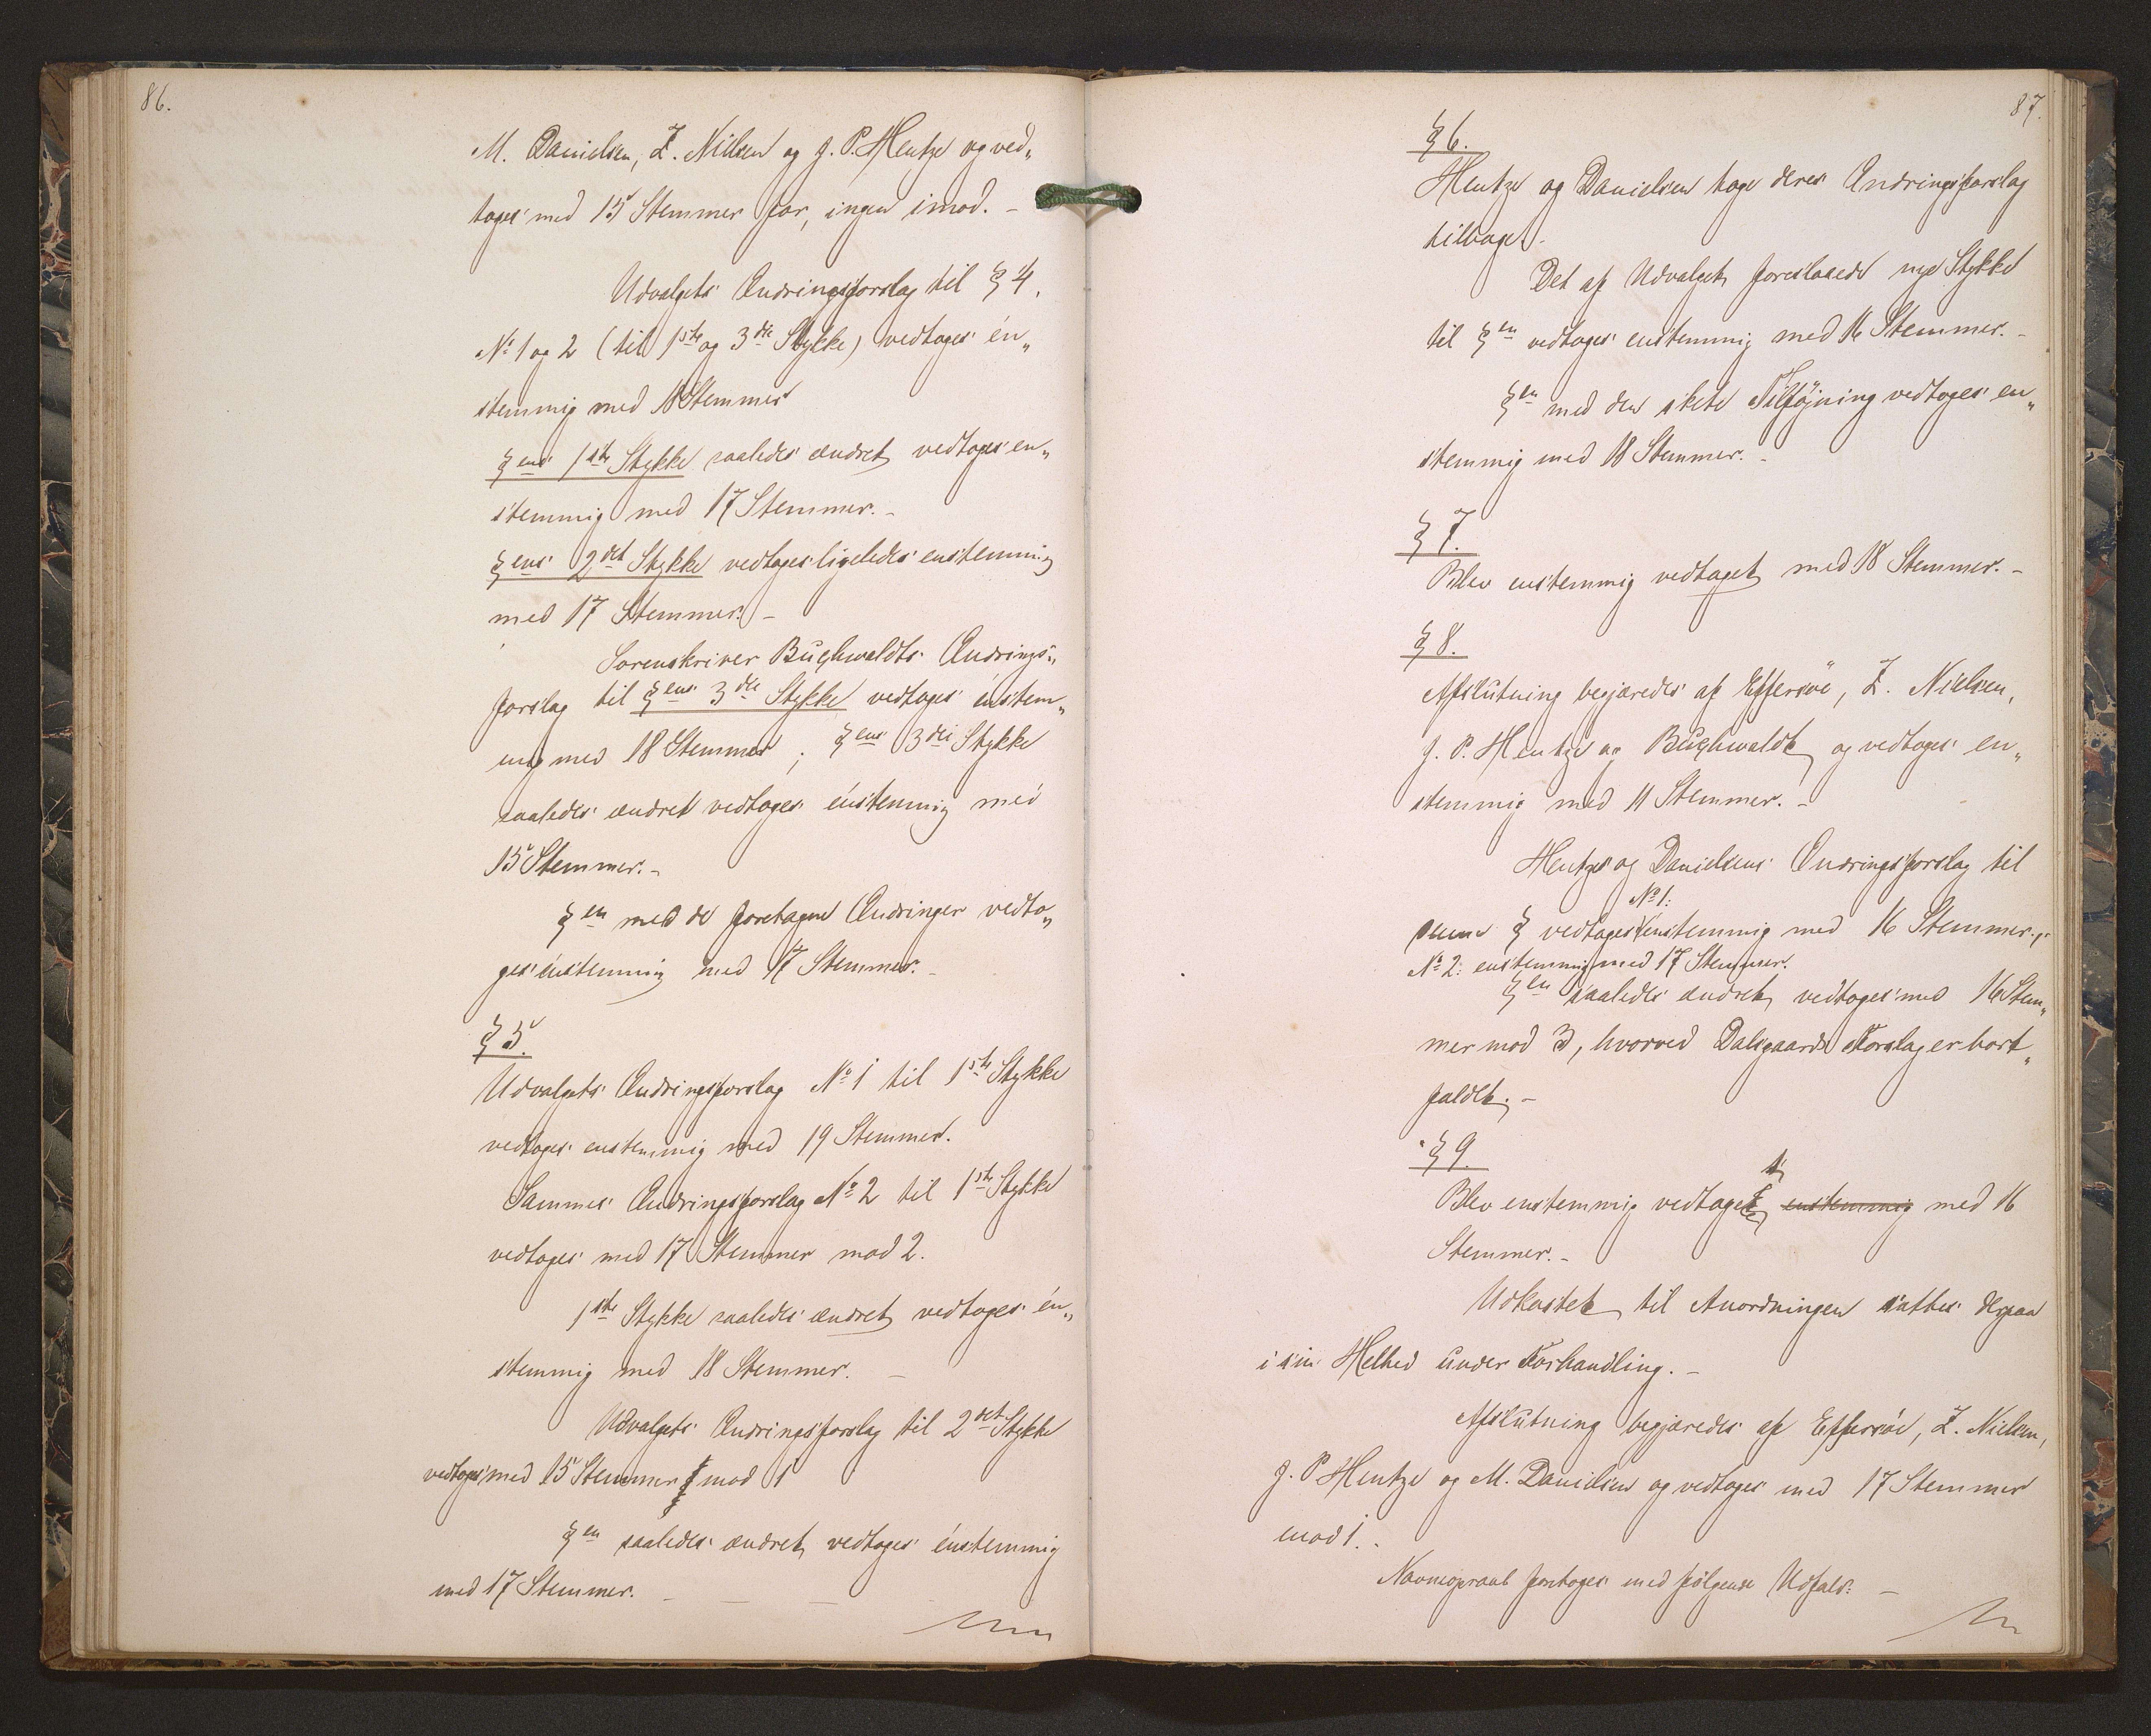 86.
M. Danielsen, Z. Nielsen og J. P. Hentze og ved„
toges med 15 Stemmer for, ingen imod. –
Udvalgets Ændringsforslag til § 4.
No 1 og 2 (til 1ste og 3die Stykke) vedtoges én„
stemmig med 18 Stemmer
§ens 1ste Stykke saaledes ændret vedtoges en„
stemmig med 17 Stemmer. –
§ens 2det Stykke vedtoges ligeledes enstemmig
med 17 Stemmer. –
Sorenskriver Buchwaldts Ændrings„
forslag til §ens 3die Stykke vedtoges énstem„
mig med 18 Stemmer; §ens 3die Stykke
saaledes ændret vedtoges énstemmig med
15 Stemmer. –
§en med de foretagne Ændringer vedto„
ges énstemmig med 17 Stemmer. –
§ 5.
Udvalgets Ændringsforslag No 1 til 1ste Stykke
vedtoges enstemmig med 19 Stemmer.
Sammes Ændringsforslag No 2 til 1ste Stykke
vedtoges med 17 Stemmer mod 2.
1ste Stykke saaledes ændret vedtoges én„
stemmig med 18 Stemmer. –
Udvalgets Ændringsforslag til 2det Stykke
vedtoges med 15 Stemmer mod 1
§en saaledes ændret vedtoges énstemmig
med 17 Stemmer. – – – –
87.
§ 6.
Hentze og Danielsen toge deres Ændringsforslag
tilbage. –
Det af Udvalget foreslaaede nye Stykke
til §en vedtoges enstemmig med 16 Stemmer. –
§en med den skete Tilføjning vedtoges en„
stemmig med 18 Stemmer. –
§ 7.
Blev enstemmig vedtaget med 18 Stemmer. –
§ 8.
Afslutning begjæredes af Effersöe, Z. Nielsen,
J. P. Hentze og Buchwaldt og vedtoges en„
stemmig med 11 Stemmer. –
Hentzes og Danielsens Ændringsforslag til
No 1:
denne § vedtoges enstemmig med 16 Stemmer.
No 2: enstemmig med 17 Stemmer.
§en saaledes ændret vedtoges med 16 Stem„
mer mod 3, hvorved Dalsgaards Forslag er bort„
faldet. –
§ 9.
Blev enstemmig vedtaget enstemmig med 16
Stemmer. –
Udkastet til Anordningen sattes derpaa
i sin Helhed under Forhandling. –
Afslutning begjæredes af Effersöe, Z. Nielsen,
J. P. Hentze og M. Danielsen og vedtoges med 17 Stemmer
mod 1. –
Navneopraab foretoges med følgende Udfald: –